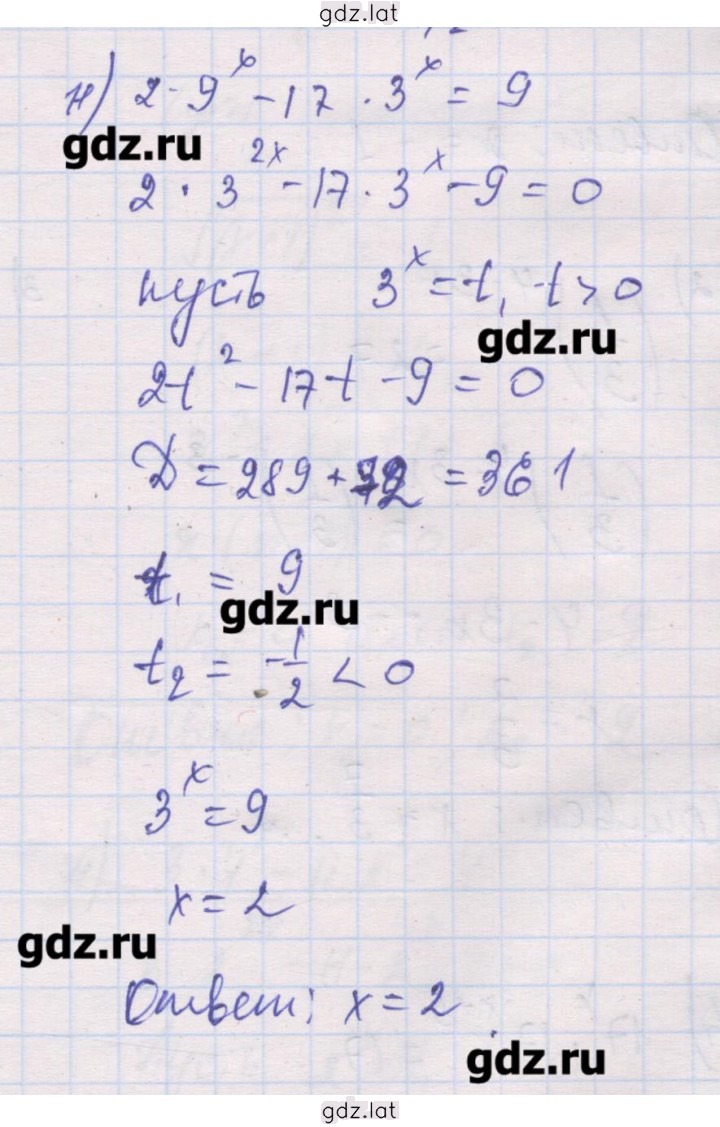 gdz.lat
н) 2·9^x - 17·3^x = 9
gdz.ru
2·3^2x - 17·3^x - 9 = 0
пусть 3^x = t, t > 0
gdz.ru
2t^2 - 17t - 9 = 0
D = 289 + 72 = 361
t₁ = 9
gdz.ru
t₂ = -1/2 < 0
3^x = 9
x = 2
gdz.ru
Ответ: x = 2
gdz.ru
gdz.lat